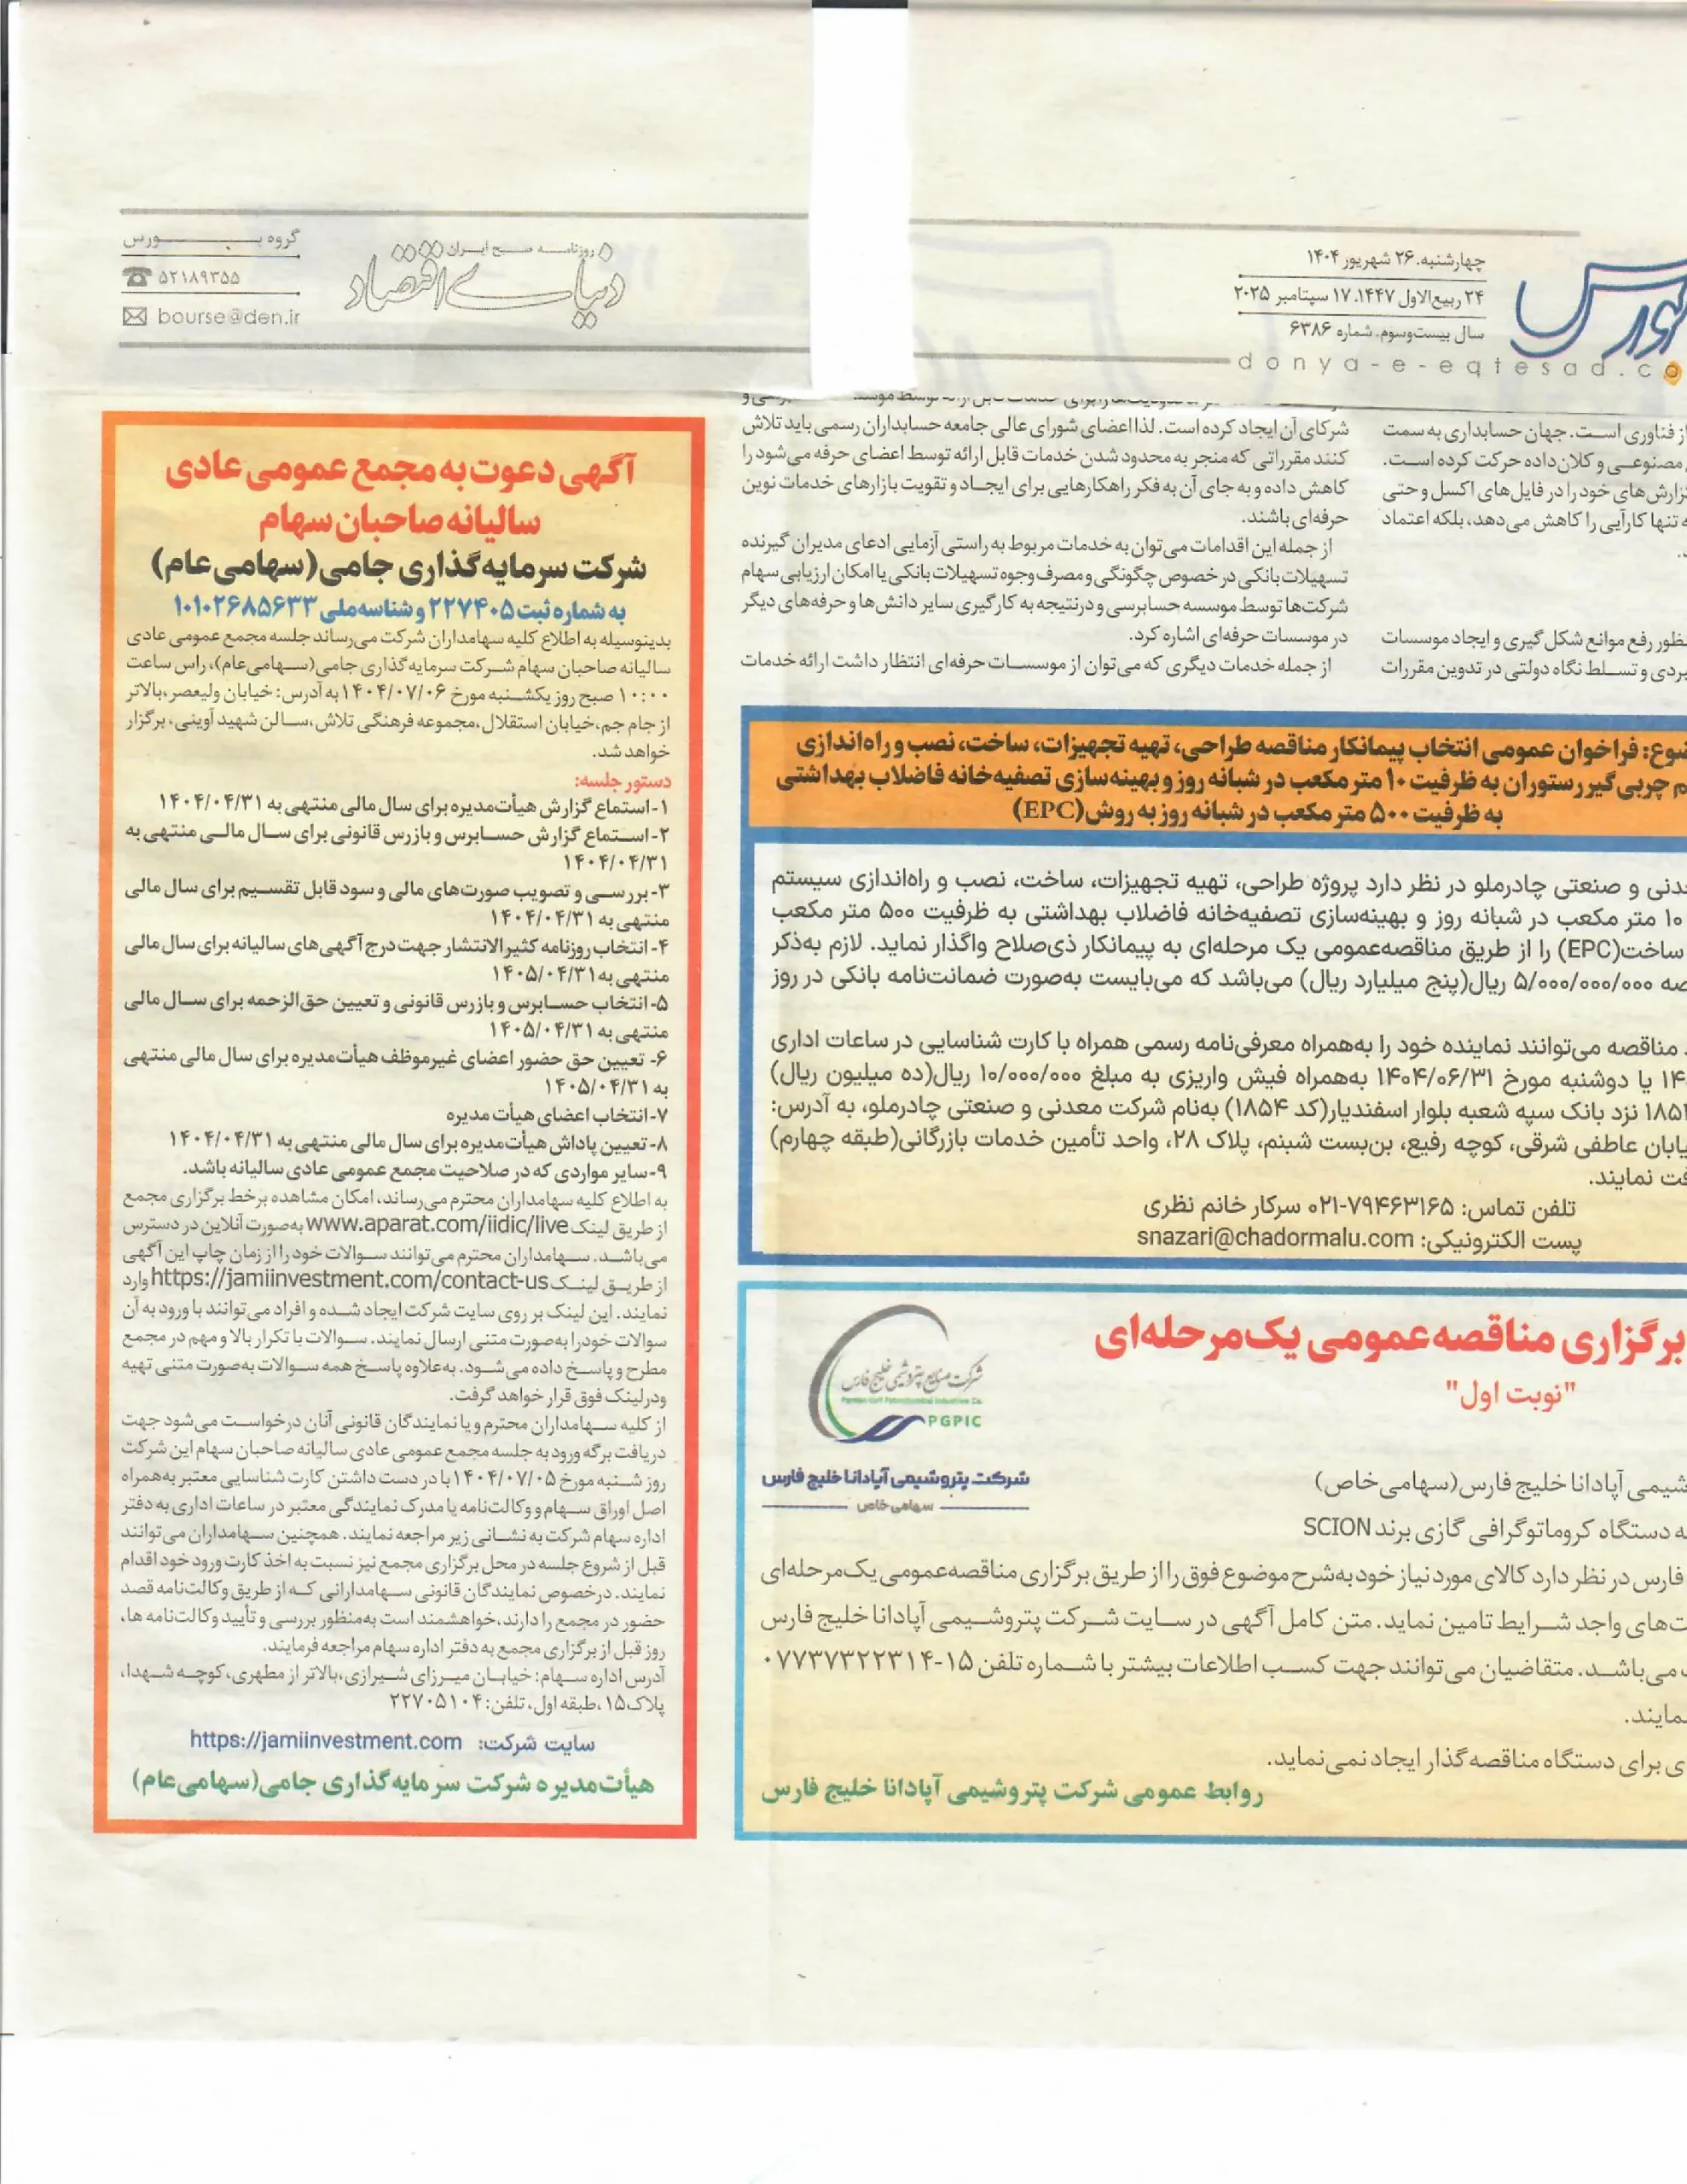 چهارشنبه. ۲۶ شهریور ۱۴۰۴
۲۴ ربیع‌الاول ۱۴۴۷. ۱۷ سپتامبر ۲۰۲۵
سال بیست‌وسوم. شماره ۶۳۸۶
donya-e-eqtesad.co
بورس
روزنامه صبح ایران
دنیای اقتصاد
گروه بورس
۵۲۱۸۹۳۵۵
bourse@den.ir
از فناوری است. جهان حسابداری به سمت
مصنوعی و کلان‌داده حرکت کرده است.
گزارش‌های خود را در فایل‌های اکسل و حتی
ه تنها کارآیی را کاهش می‌دهد، بلکه اعتماد
د.
نظور رفع موانع شکل‌گیری و ایجاد موسسات
بردی و تسلط نگاه دولتی در تدوین مقررات
شرکای آن ایجاد کرده است. لذا اعضای شورای عالی جامعه حسابداران رسمی باید تلاش
کنند مقرراتی که منجر به محدود شدن خدمات قابل ارائه توسط اعضای حرفه می‌شود را
کاهش داده و به جای آن به فکر راهکارهایی برای ایجاد و تقویت بازارهای خدمات نوین
حرفه‌ای باشند.
از جمله این اقدامات می‌توان به خدمات مربوط به راستی آزمایی ادعای مدیران گیرنده
تسهیلات بانکی در خصوص چگونگی و مصرف وجوه تسهیلات بانکی یا امکان ارزیابی سهام
شرکت‌ها توسط موسسه حسابرسی و درنتیجه به کارگیری سایر دانش‌ها و حرفه‌های دیگر
در موسسات حرفه‌ای اشاره کرد.
از جمله خدمات دیگری که می‌توان از موسسات حرفه‌ای انتظار داشت ارائه خدمات
ضوع: فراخوان عمومی انتخاب پیمانکار مناقصه طراحی، تهیه تجهیزات، ساخت، نصب و راه‌اندازی
م چربی‌گیر رستوران به ظرفیت ۱۰ متر مکعب در شبانه روز و بهینه‌سازی تصفیه‌خانه فاضلاب بهداشتی
به ظرفیت ۵۰۰ متر مکعب در شبانه روز به روش (EPC)
عدنی و صنعتی چادرملو در نظر دارد پروژه طراحی، تهیه تجهیزات، ساخت، نصب و راه‌اندازی سیستم
۱۰ متر مکعب در شبانه روز و بهینه‌سازی تصفیه‌خانه فاضلاب بهداشتی به ظرفیت ۵۰۰ متر مکعب
ساخت(EPC) را از طریق مناقصه‌عمومی یک مرحله‌ای به پیمانکار ذی‌صلاح واگذار نماید. لازم به‌ذکر
صه ۵/۰۰۰/۰۰۰/۰۰۰ ریال(پنج میلیارد ریال) می‌باشد که می‌بایست به‌صورت ضمانت‌نامه بانکی در روز
مناقصه می‌توانند نماینده خود را به‌همراه معرفی‌نامه رسمی همراه با کارت شناسایی در ساعات اداری
۱۴ یا دوشنبه مورخ ۱۴۰۴/۰۶/۳۱ به‌همراه فیش واریزی به مبلغ ۱۰/۰۰۰/۰۰۰ ریال(ده میلیون ریال)
۱۸۵ نزد بانک سپه شعبه بلوار اسفندیار(کد ۱۸۵۴) به‌نام شرکت معدنی و صنعتی چادرملو، به آدرس:
یابان عاطفی شرقی، کوچه رفیع، بن‌بست شبنم، پلاک ۲۸، واحد تأمین خدمات بازرگانی(طبقه چهارم)
فت نمایند.
تلفن تماس: ۷۹۴۶۳۱۶۵-۰۲۱ سرکار خانم نظری
پست الکترونیکی: snazari@chadormalu.com
برگزاری مناقصه عمومی یک‌مرحله‌ای
"نوبت اول"
شرکت صنایع پتروشیمی خلیج فارس
Persian Gulf Petrochemical Industries Co.
PGPIC
شرکت پتروشیمی آپادانا خلیج فارس
سهامی خاص
شیمی آپادانا خلیج فارس(سهامی خاص)
ه دستگاه کروماتوگرافی گازی برند SCION
فارس در نظر دارد کالای مورد نیاز خود به‌شرح موضوع فوق را از طریق برگزاری مناقصه‌عمومی یک‌مرحله‌ای
ت‌های واجد شرایط تامین نماید. متن کامل آگهی در سایت شرکت پتروشیمی آپادانا خلیج فارس
می‌باشد. متقاضیان می‌توانند جهت کسب اطلاعات بیشتر با شماره تلفن ۱۵-۰۷۷۳۷۳۲۲۳۱۴
نمایند.
ی برای دستگاه مناقصه‌گذار ایجاد نمی‌نماید.
روابط عمومی شرکت پتروشیمی آپادانا خلیج فارس
آگهی دعوت به مجمع عمومی عادی
سالیانه صاحبان سهام
شرکت سرمایه‌گذاری جامی (سهامی عام)
به شماره ثبت ۲۲۷۴۰۵ و شناسه ملی ۱۰۱۰۲۶۸۵۶۳۳
بدینوسیله به اطلاع کلیه سهامداران شرکت می‌رساند جلسه مجمع عمومی عادی
سالیانه صاحبان سهام شرکت سرمایه گذاری جامی (سهامی‌عام)، راس ساعت
۱۰:۰۰ صبح روز یکشنبه مورخ ۱۴۰۴/۰۷/۰۶ به آدرس: خیابان ولیعصر،بالاتر
از جام جم،خیابان استقلال،مجموعه فرهنگی تلاش،سالن شهید آوینی، برگزار
خواهد شد.
دستور جلسه:
۱- استماع گزارش هیأت‌مدیره برای سال مالی منتهی به ۱۴۰۴/۰۴/۳۱
۲- استماع گزارش حسابرس و بازرس قانونی برای سال مالی منتهی به
۱۴۰۴/۰۴/۳۱
۳- بررسی و تصویب صورت‌های مالی و سود قابل تقسیم برای سال مالی
منتهی به ۱۴۰۴/۰۴/۳۱
۴- انتخاب روزنامه کثیرالانتشار جهت درج آگهی‌های سالیانه برای سال مالی
منتهی به ۱۴۰۵/۰۴/۳۱
۵- انتخاب حسابرس و بازرس قانونی و تعیین حق‌الزحمه برای سال مالی
منتهی به ۱۴۰۵/۰۴/۳۱
۶- تعیین حق حضور اعضای غیرموظف هیأت‌مدیره برای سال مالی منتهی
به ۱۴۰۵/۰۴/۳۱
۷- انتخاب اعضای هیأت مدیره
۸- تعیین پاداش هیأت‌مدیره برای سال مالی منتهی به ۱۴۰۴/۰۴/۳۱
۹- سایر مواردی که در صلاحیت مجمع عمومی عادی سالیانه باشد.
به اطلاع کلیه سهامداران محترم می‌رساند، امکان مشاهده برخط برگزاری مجمع
از طریق لینک www.aparat.com/iidic/live به‌صورت آنلاین در دسترس
می‌باشد. سهامداران محترم می‌توانند سوالات خود را از زمان چاپ این آگهی
از طریق لینک https://jamiinvestment.com/contact-us وارد
نمایند. این لینک بر روی سایت شرکت ایجاد شده و افراد می‌توانند با ورود به آن
سوالات خودرا به‌صورت متنی ارسال نمایند. سوالات با تکرار بالا و مهم در مجمع
مطرح و پاسخ داده می‌شود. به‌علاوه پاسخ همه سوالات به‌صورت متنی تهیه
ودرلینک فوق قرار خواهد گرفت.
از کلیه سهامداران محترم و یا نمایندگان قانونی آنان درخواست می‌شود جهت
دریافت برگه ورود به جلسه مجمع عمومی عادی سالیانه صاحبان سهام این شرکت
روز شنبه مورخ ۱۴۰۴/۰۷/۰۵ با در دست داشتن کارت شناسایی معتبر به‌همراه
اصل اوراق سهام و وکالت‌نامه یا مدرک نمایندگی معتبر در ساعات اداری به دفتر
اداره سهام شرکت به نشانی زیر مراجعه نمایند. همچنین سهامداران می‌توانند
قبل از شروع جلسه در محل برگزاری مجمع نیز نسبت به اخذ کارت ورود خود اقدام
نمایند. درخصوص نمایندگان قانونی سهامدارانی که از طریق وکالت‌نامه قصد
حضور در مجمع را دارند، خواهشمند است به‌منظور بررسی و تأیید وکالت‌نامه ها،
روز قبل از برگزاری مجمع به دفتر اداره سهام مراجعه فرمایند.
آدرس اداره سهام: خیابان میرزای شیرازی،بالاتر از مطهری،کوچه شهدا،
پلاک۱۵ ،طبقه اول، تلفن: ۲۲۷۰۵۱۰۴
سایت شرکت: https://jamiinvestment.com
هیأت‌مدیره شرکت سرمایه گذاری جامی (سهامی عام)